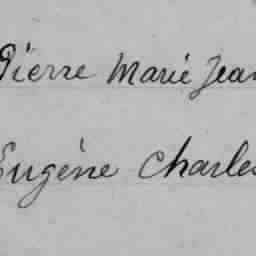 Pierre Marie Jean
Eugène Charles